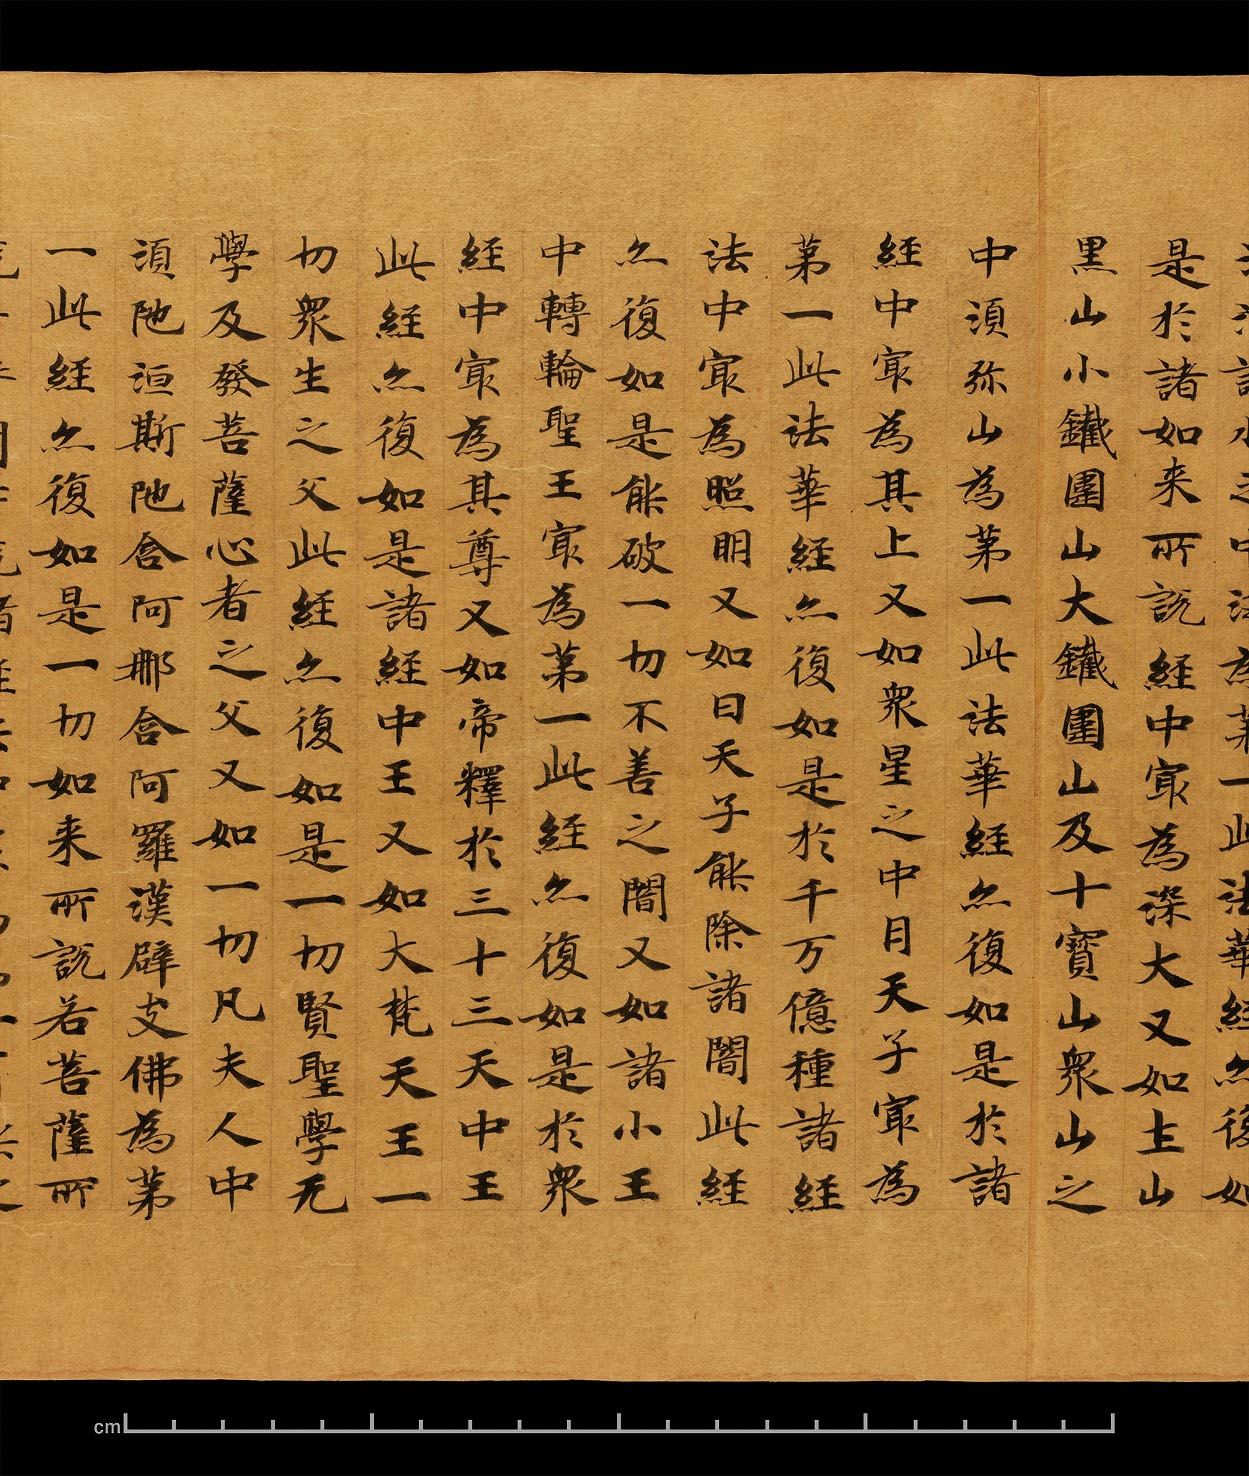 諸水之中海為苐一此法華經亦復如
是於諸如来所說經中㝡為深大又如土山
黑山小鐵圍山大鐵圍山及十寶山衆山之
中須弥山為苐一此法華經亦復如是於諸
經中㝡為其上又如衆星之中月天子㝡為
苐一此法華經亦復如是於千万億種諸經
法中㝡為照明又如日天子能除諸闇此經
亦復如是能破一切不善之闇又如諸小王
中轉輪聖王㝡為苐一此經亦復如是於衆
經中㝡為其尊又如帝釋於三十三天中王
此經亦復如是諸經中王又如大梵天王一
切衆生之父此經亦復如是一切賢聖學无
學及發菩薩心者之父又如一切凡夫人中
須陁洹斯陁含阿那含阿羅漢辟支佛為苐
一此經亦復如是一切如来所說若菩薩所
cm